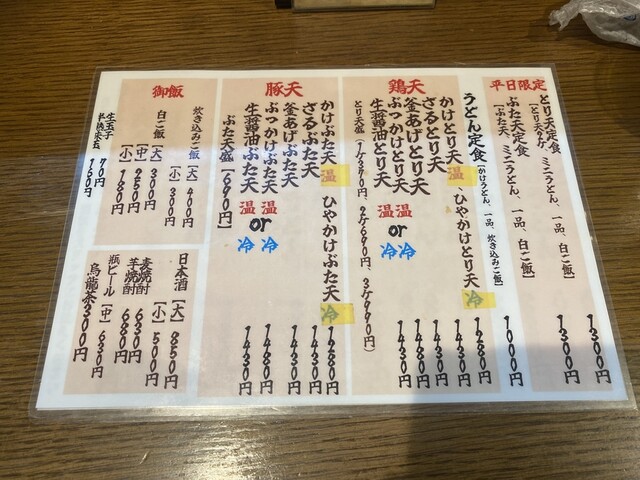 平日限定
とり天定食 1300円
[とり天2ケ、ミニうどん、一品、白ご飯]
ぶた天定食 1300円
[ぶた天、ミニうどん、一品、白ご飯]
うどん定食 1000円
[かけうどん、一品、炊き込みご飯]
鶏天
かけとり天 温、ひやかけとり天 冷 1280円
ざるとり天 1430円
釜あげとり天 1430円
ぶっかけとり天 温 or 冷 1480円
生醤油とり天 温 or 冷 1430円
とり天盛
豚天
かけぶた天 温、ひやかけぶた天 冷 1280円
ざるぶた天 1430円
釜あげぶた天 1430円
ぶっかけぶた天 温 or 冷 1480円
生醤油ぶた天 温 or 冷 1430円
ぶた天盛 (690円)
御飯
炊き込みご飯 [大] 400円
[小] 300円
白ご飯 [大] 300円
[中] 250円
[小] 180円
生玉子 70円
半熟玉天 150円
日本酒 [大] 850円
[小] 500円
麦焼酎 630円
芋焼酎 680円
瓶ビール [中] 630円
烏龍茶 300円